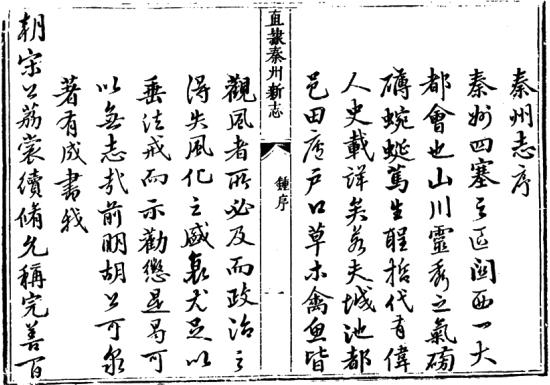 秦州志序
秦州四塞之區關西一大
都會也山川靈秀之氣磅
礴蜿蜒篤生聖哲代有偉
人史載詳矣若夫城池都
邑田廬戶口草木禽魚皆
直隸秦州新志
鍾序
一
觀風者所必及而政治之
得失風化之盛衰尤足以
垂法戒而示勸懲是曷可
以無志哉前明胡公可泉
著有成書我
朝宋公荔裳續脩允稱完善百